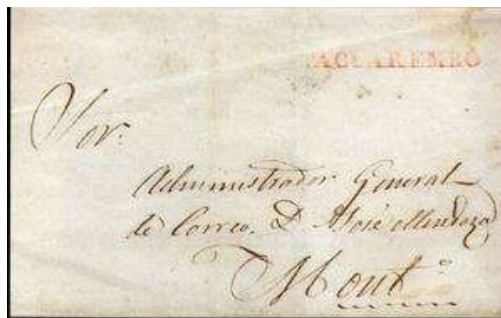 TACUAREMBÓ
Sor.
Administrador General
de Correo, D. José Mendoza
Montº